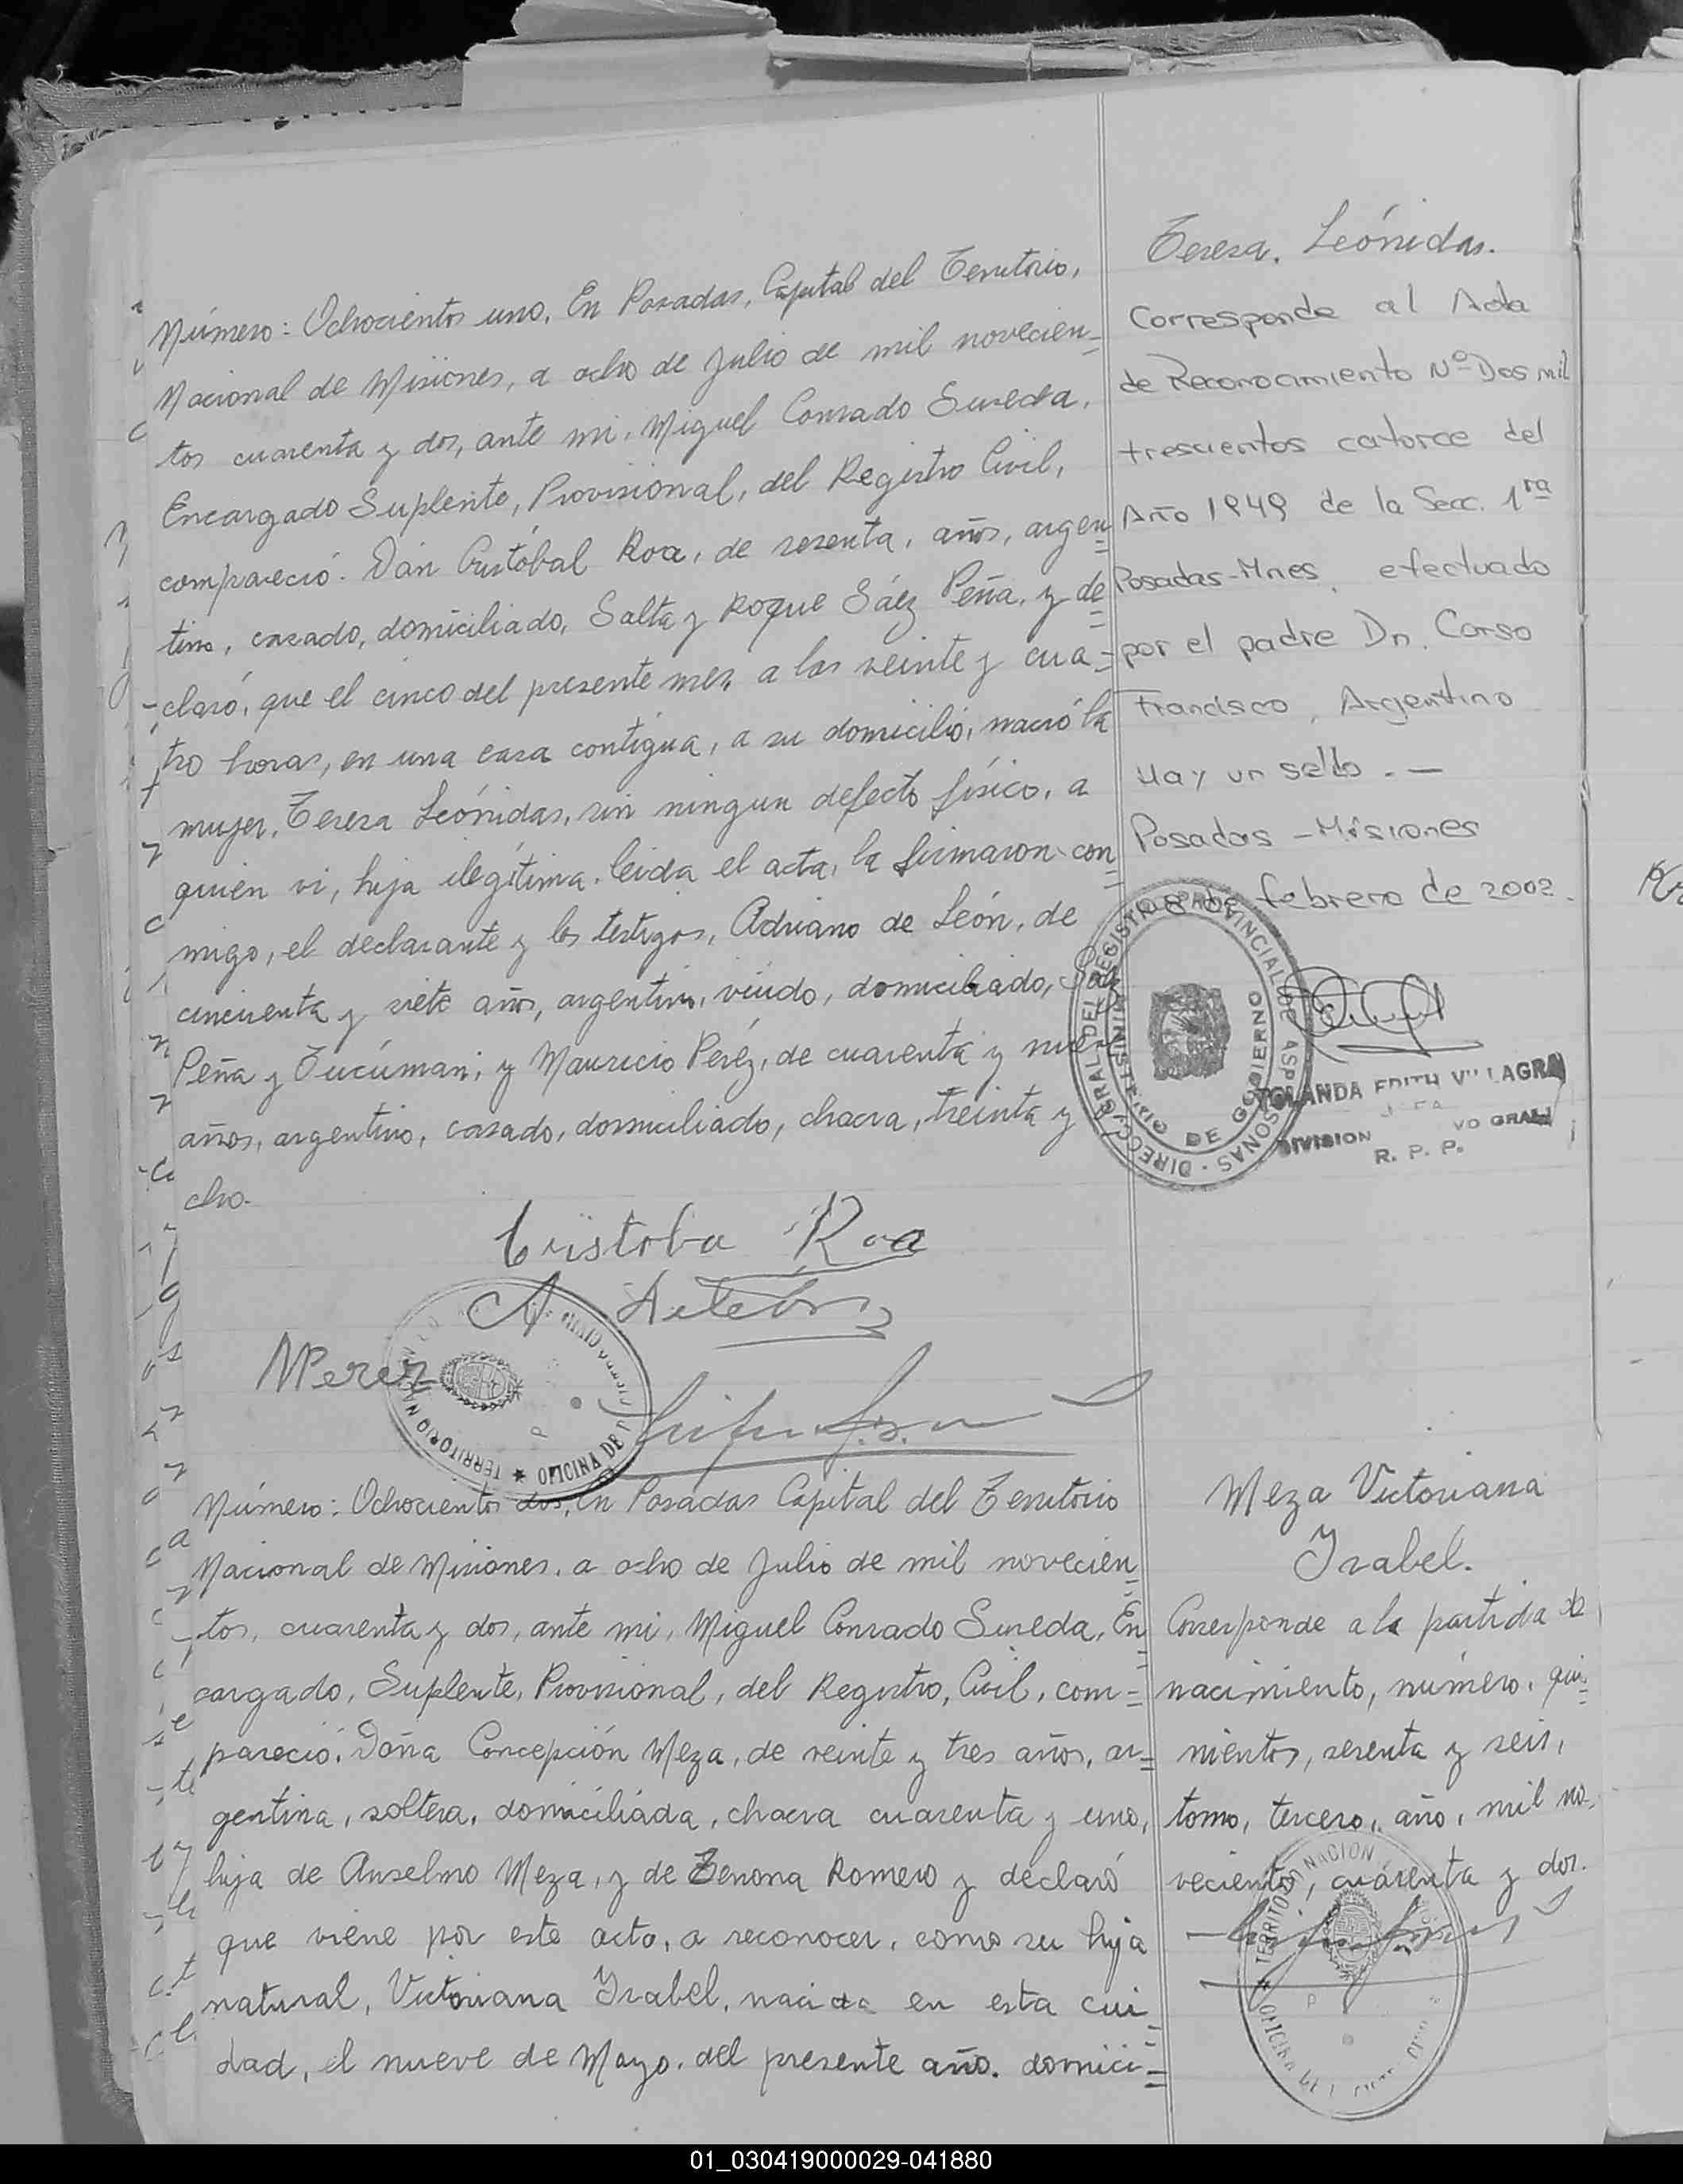 Teresa. Leónidas.
Número: Ochocientos uno. En Posadas, Capital del Territorio,
Nacional de Misiones, a ocho de Julio de mil novecien=
tos cuarenta y dos, ante mi, Miguel Conrado Sureda,
Encargado Suplente, Provisional, del Registro Civil,
compareció. Dón Cristóbal Roa, de sesenta, años, argen=
tino, casado, domiciliado, Salta y Roque Sáez Peña, y de=
-claró, que el cinco del presente mes, a las veinte y cua=
tro horas, en una casa contigua, a su domicilio, nació la
mujer, Teresa Leónidas, sin ningun defecto físico, a
quien vi, hija ilegítima. leida el acta, la firmaron con=
migo, el declarante y los testigos, Adriano de León, de
cincuenta y siete años, argentino, viudo, domiciliado,
Peña y Tucúman; y Mauricio Peréz, de cuarenta y
años, argentino, casado, domiciliado, chacra, treinta y
cho.
Corresponde al Acta
de Reconocimiento Nº Dos mil
trescientos catorce del
Año 1949 de la Secc. 1ra
Posadas-Mnes. efectuado
por el padre Dn. Corso
Francisco, Argentino
Hay un sello. —
Posadas - Misiones
8 de febrero de 2002.
DIRECC. GRAL. DEL REGISTRO PROVINCIAL DE LAS PERSONAS
MINISTERIO DE GOBIERNO
YOLANDA EDITH VILLAGRA
DIVISION
R. P. P.
Cristoba Roa
MPerez
TERRITORIO
Número: Ochocientos dos, En Posadas Capital del Territorio
Nacional de Misiones, a ocho de Julio de mil novecien=
-tos, cuarenta y dos, ante mi, Miguel Conrado Sureda, En=
cargado, Suplente, Provisional, del Registro, Civil, com=
pareció. Doña Concepción Meza, de veinte y tres años, ar=
gentina, soltera, domiciliada, chacra cuarenta y uno,
hija de Anselmo Meza, y de Zenona Romero y declaró
que viene por este acto, a reconocer, como su hija
natural, Victoriana Ysabel, nacida en esta ciu=
dad, el nueve de Mayo, del presente año. domici=
Meza Victoriana
Ysabel.
Corresponde a la partida de
nacimiento, número, qui=
nientos, sesenta y seis,
tomo, tercero, año, mil no-
vecientos, cuarenta y dos.
01_030419000029-041880